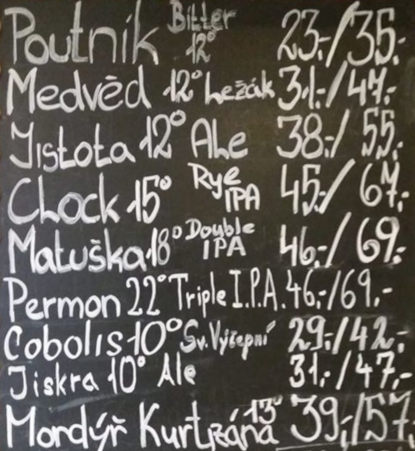 Poutník Bitter 12° 23,-/35,-
Medvěd 12° Ležák 31,-/47,-
Jistota 12° Ale 38,-/55,-
Clock 15° Rye IPA 45,-/67,-
Matuška 18° Double IPA 46,-/69,-
Permon 22° Triple I.P.A. 46,-/69,-
Cobolis 10° Sv. Výčepní 29,-/42,-
Jiskra 10° Ale 31,-/47,-
Mordýř Kurtizána 13° 39,-/57,-